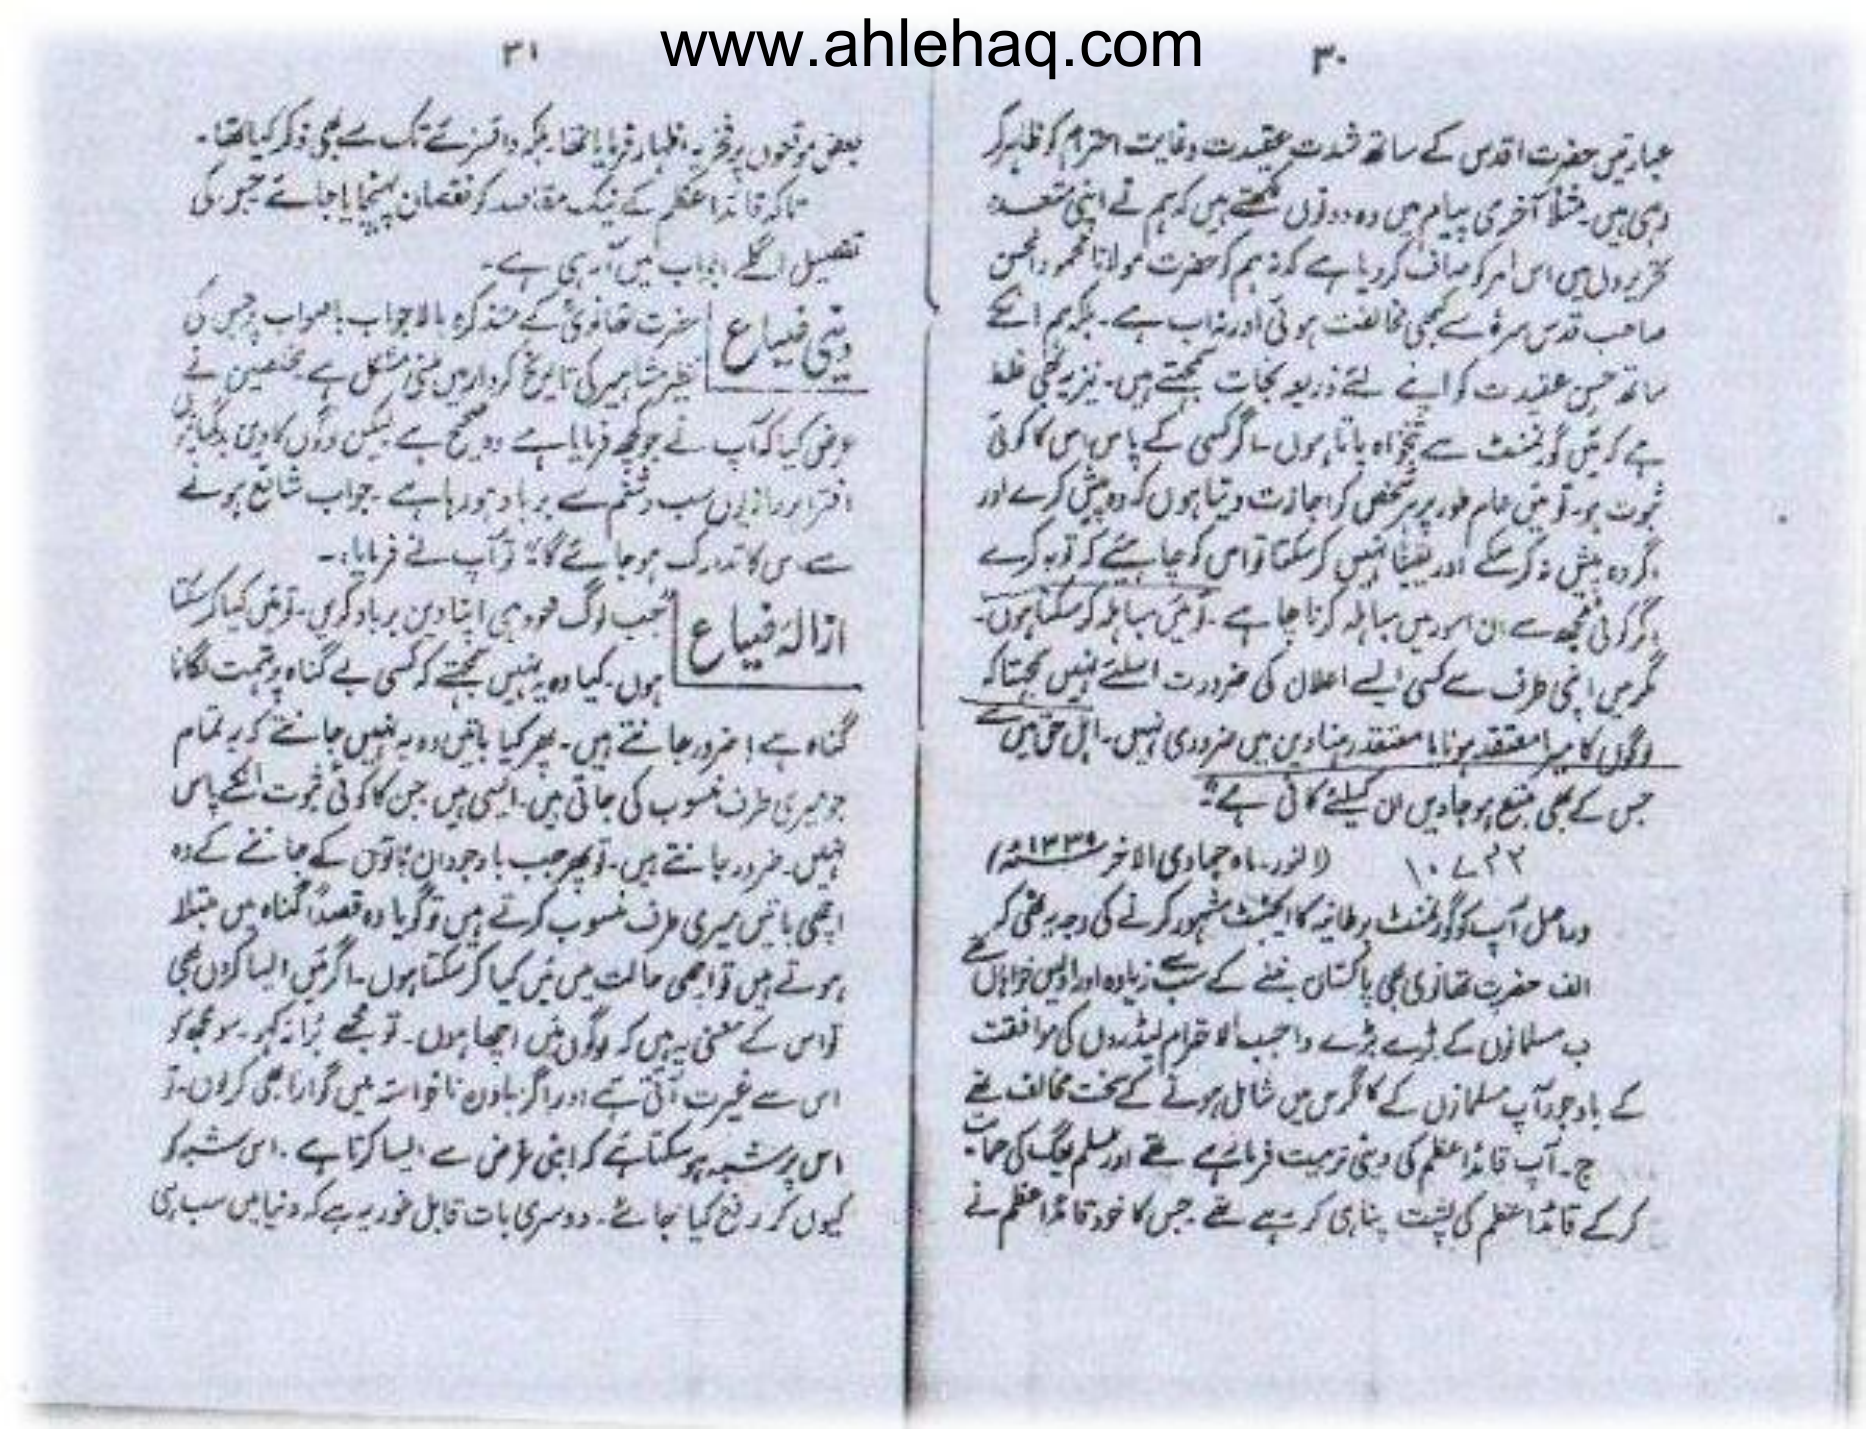 www.ahlehaq.com
۳۰
عبارتیں حضرت اقدس کے ساتھ شدت عقیدت وغایت احترام کو ظاہر کر
رہی ہیں۔ مثلاً آخری پیام میں وہ دونوں لکھتے ہیں کہ ہم نے اپنی متعدد
تحریروں میں اس امر کو صاف کر دیا ہے کہ نہ ہم کو حضرت مولانا محمود الحسن
صاحب قدس سرہٗ سے کبھی مخالفت ہوئی اور نہ اب ہے۔ بلکہ ہم انکے
ساتھ حسن عقیدت کو اپنے لئے ذریعہ نجات سمجھتے ہیں۔ نیز یہ بھی غلط
ہے کہ میں گورنمنٹ سے تنخواہ پاتا ہوں۔ اگر کسی کے پاس اس کا کوئی
ثبوت ہو۔ تو میں عام طور پر ہر شخص کو اجازت دیتا ہوں کہ وہ پیش کرے اور
اگر وہ پیش نہ کر سکے اور یقیناً نہیں کر سکتا تو اس کو چاہئے کہ توبہ کرے
اگر کوئی مجھ سے ان امور میں مباہلہ کرنا چاہے۔ تو میں مباہلہ کر سکتا ہوں۔
مگر میں اپنی طرف سے کسی ایسے اعلان کی ضرورت اسلئے نہیں سمجھتا کہ
لوگوں کا میرا معتقد ہونا یا معتقد رہنا دین میں ضروری نہیں۔ اہل حق میں سے
جس کے بھی متبع ہو جاویں ان کیلئے کافی ہے"۔
(النور۔ ماہ جمادی الآخر ۱۳۳۹ھ)
دراصل آپ کو گورنمنٹ برطانیہ کا ایجنٹ مشہور کرنے کی وجہ یہ تھی کہ
الف حضرت تھانوی بھی پاکستان بننے کے سب سے زیادہ اور اولیں خواہاں تھے
ب مسلمانوں کے بڑے بڑے واجب الاحترام لیڈروں کی موافقت
کے باوجود آپ مسلمانوں کے کانگرس میں شامل ہونے کے سخت مخالف تھے
ج۔ آپ قائداعظم کی دینی تربیت فرما رہے تھے اور مسلم لیگ کی حمایت
کر کے قائداعظم کی پشت پناہی کر رہے تھے۔ جس کا خود قائداعظم نے
۳۱
بعض موقعوں پر فخریہ اظہار فرمایا تھا۔ بلکہ وائسرئے تک سے بھی ذکر کیا تھا۔
تاکہ قائداعظم کے نیک مقاصد کو نقصان پہنچایا جائے جس کی
تفصیل اگلے ابواب میں آرہی ہے۔
دینی ضیاع
حضرت تھانویؒ کے متذکرہ بالا جواب باصواب پر جس کی
نظیر مشاہیر کی تاریخ کردار میں ملنی مشکل ہے۔ مخلصین نے
عرض کیا کہ آپ نے جو کچھ فرمایا ہے وہ صحیح ہے لیکن لوگوں کا دین بدگمانیوں
افترا پردازیوں سب وشتم سے برباد ہو رہا ہے۔ جواب شائع ہونے
سے اس کا تدارک ہو جائے گا" تو آپ نے فرمایا:۔
ازالۂ ضیاع
"جب لوگ خود ہی اپنا دین برباد کریں۔ تو میں کیا کر سکتا
ہوں۔ کیا وہ یہ نہیں سمجھتے کہ کسی بے گناہ پر تہمت لگانا
گناہ ہے؟ ضرور جانتے ہیں۔ پھر کیا باتیں وہ یہ نہیں جانتے کہ یہ تمام
جو میری طرف منسوب کی جاتی ہیں۔ ایسی ہیں جن کا کوئی ثبوت انکے پاس
نہیں۔ ضرور جانتے ہیں۔ تو پھر جب باوجود ان باتوں کے جاننے کے وہ
ایسی باتیں میری طرف منسوب کرتے ہیں تو گویا وہ قصداً گناہ میں مبتلا
ہوتے ہیں تو ایسی حالت میں میں کیا کر سکتا ہوں۔ اگر میں ایسا کروں بھی
تو اس کے معنی یہ ہیں کہ لوگوں میں اچھا ہوں۔ تو مجھے بُرا نہ کہو۔ سو مجھ کو
اس سے غیرت آتی ہے اور اگر بادل ناخواستہ میں گوارا بھی کر لوں۔ تو
اس پر شبہ ہو سکتا ہے کہ اپنی غرض سے ایسا کرتا ہے۔ اس شبہ کو
کیوں کر رفع کیا جائے۔ دوسری بات قابل غور یہ ہے کہ دنیا میں سب ہی